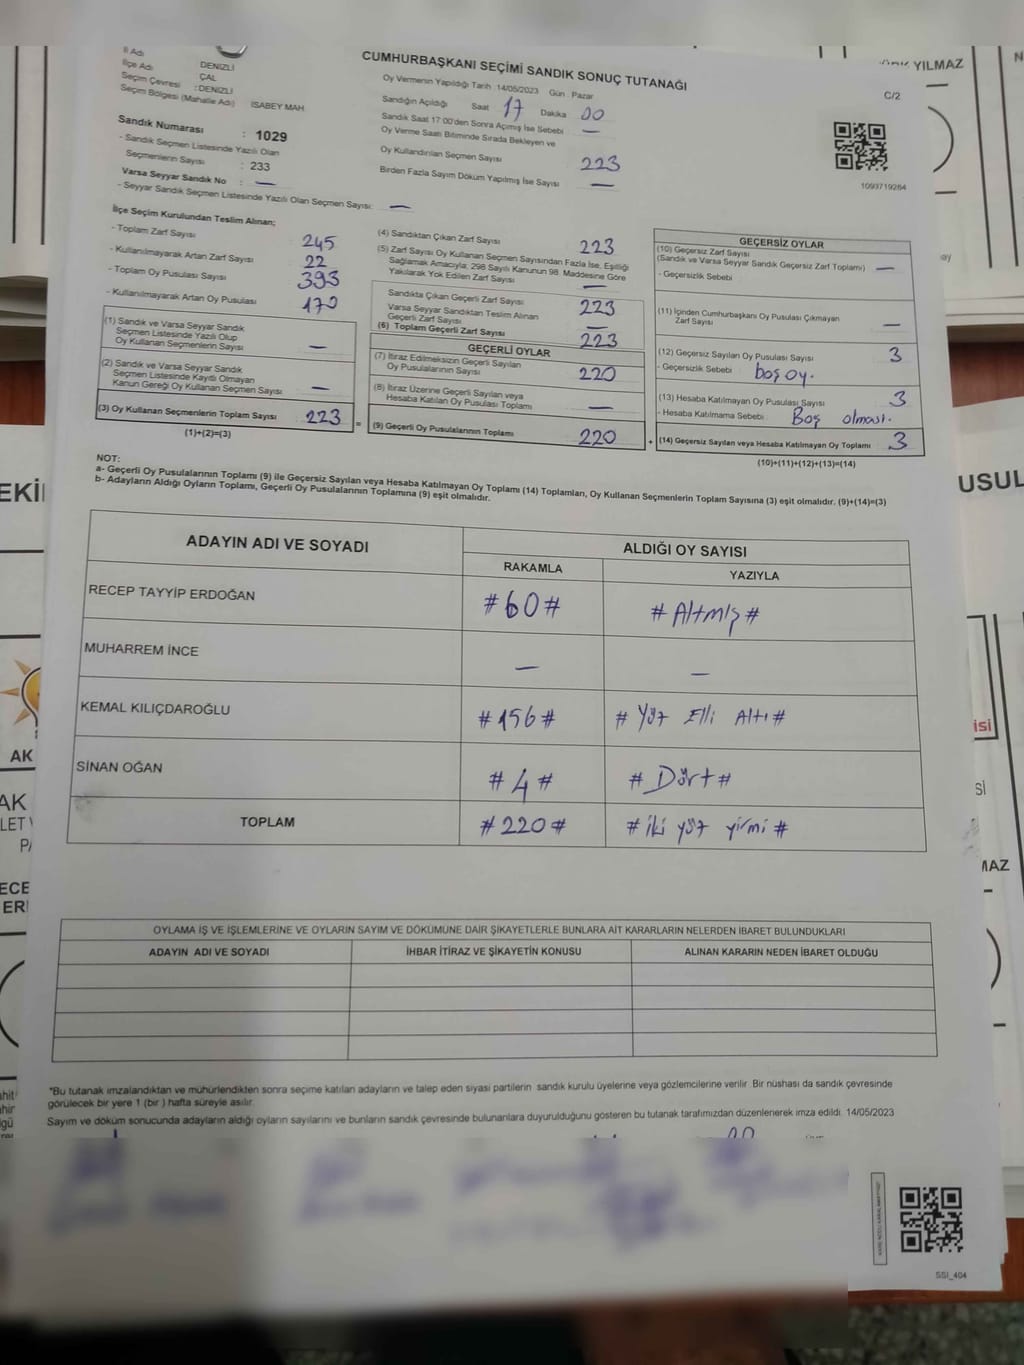 İl Adı
İlçe Adı DENİZLİ
Seçim Çevresi ÇAL
Seçim Bölgesi (Mahalle Adı) : DENİZLİ
İSABEY MAH
CUMHURBAŞKANI SEÇİMİ SANDIK SONUÇ TUTANAĞI
Oy Vermenin Yapıldığı Tarih :14/05/2023 Gün : Pazar
C/2
Sandığın Açıldığı Saat 17 Dakika 00
Sandık Saat 17:00'den Sonra Açmış İse Sebebi —
Oy Verme Saati Bitiminde Sırada Bekleyen ve
Oy Kullandırılan Seçmen Sayısı 223
Birden Fazla Sayım Döküm Yapılmış İse Sayısı —
1093719264
Sandık Numarası : 1029
- Sandık Seçmen Listesinde Yazılı Olan
Seçmenlerin Sayısı : 233
Varsa Seyyar Sandık No : —
- Seyyar Sandık Seçmen Listesinde Yazılı Olan Seçmen Sayısı: —
İlçe Seçim Kurulundan Teslim Alınan;
- Toplam Zarf Sayısı 245
- Kullanılmayarak Artan Zarf Sayısı 22
- Toplam Oy Pusulası Sayısı 393
- Kullanılmayarak Artan Oy Pusulası 170
(1) Sandık ve Varsa Seyyar Sandık
Seçmen Listesinde Yazılı Olup
Oy Kullanan Seçmenlerin Sayısı —
(2) Sandık ve Varsa Seyyar Sandık
Seçmen Listesinde Kayıtlı Olmayan
Kanun Gereği Oy Kullanan Seçmen Sayısı —
(3) Oy Kullanan Seçmenlerin Toplam Sayısı 223 =
(1)+(2)=(3)
(4) Sandıktan Çıkan Zarf Sayısı 223
(5) Zarf Sayısı Oy Kullanan Seçmen Sayısından Fazla İse, Eşitliği
Sağlamak Amacıyla, 298 Sayılı Kanunun 98. Maddesine Göre
Yakılarak Yok Edilen Zarf Sayısı —
Sandıkta Çıkan Geçerli Zarf Sayısı 223
Varsa Seyyar Sandıktan Teslim Alınan
Geçerli Zarf Sayısı —
(6) Toplam Geçerli Zarf Sayısı 223
GEÇERLİ OYLAR
(7) İtiraz Edilmeksizin Geçerli Sayılan
Oy Pusulalarının Sayısı 220
(8) İtiraz Üzerine Geçerli Sayılan veya
Hesaba Katılan Oy Pusulası Toplamı —
(9) Geçerli Oy Pusulalarının Toplamı 220 +
GEÇERSİZ OYLAR
(10) Geçersiz Zarf Sayısı
(Sandık ve Varsa Seyyar Sandık Geçersiz Zarf Toplamı) —
- Geçersizlik Sebebi
(11) İçinden Cumhurbaşkanı Oy Pusulası Çıkmayan
Zarf Sayısı —
(12) Geçersiz Sayılan Oy Pusulası Sayısı 3
- Geçersizlik Sebebi boş oy.
(13) Hesaba Katılmayan Oy Pusulası Sayısı 3
- Hesaba Katılmama Sebebi Boş olması.
(14) Geçersiz Sayılan veya Hesaba Katılmayan Oy Toplamı 3
(10)+(11)+(12)+(13)=(14)
NOT:
a- Geçerli Oy Pusulalarının Toplamı (9) ile Geçersiz Sayılan veya Hesaba Katılmayan Oy Toplamı (14) Toplamları, Oy Kullanan Seçmenlerin Toplam Sayısına (3) eşit olmalıdır. (9)+(14)=(3)
b- Adayların Aldığı Oyların Toplamı, Geçerli Oy Pusulalarının Toplamına (9) eşit olmalıdır.
ADAYIN ADI VE SOYADI
ALDIĞI OY SAYISI
RAKAMLA YAZIYLA
RECEP TAYYİP ERDOĞAN #60# #Altmış#
MUHARREM İNCE — —
KEMAL KILIÇDAROĞLU #156# # Yüz Elli Altı #
SİNAN OĞAN #4# # Dört #
TOPLAM #220# # iki yüz yirmi #
OYLAMA İŞ VE İŞLEMLERİNE VE OYLARIN SAYIM VE DÖKÜMÜNE DAİR ŞİKAYETLERLE BUNLARA AİT KARARLARIN NELERDEN İBARET BULUNDUKLARI
ADAYIN ADI VE SOYADI İHBAR İTİRAZ VE ŞİKAYETİN KONUSU ALINAN KARARIN NEDEN İBARET OLDUĞU
*Bu tutanak imzalandıktan ve mühürlendikten sonra seçime katılan adayların ve talep eden siyasi partilerin sandık kurulu üyelerine veya gözlemcilerine verilir. Bir nüshası da sandık çevresinde
görülecek bir yere 1 (bir ) hafta süreyle asılır.
Sayım ve döküm sonucunda adayların aldığı oyların sayılarını ve bunların sandık çevresinde bulunanlara duyurulduğunu gösteren bu tutanak tarafımızdan düzenlenerek imza edildi. 14/05/2023
SSI_404
YILMAZ
USUL
AK